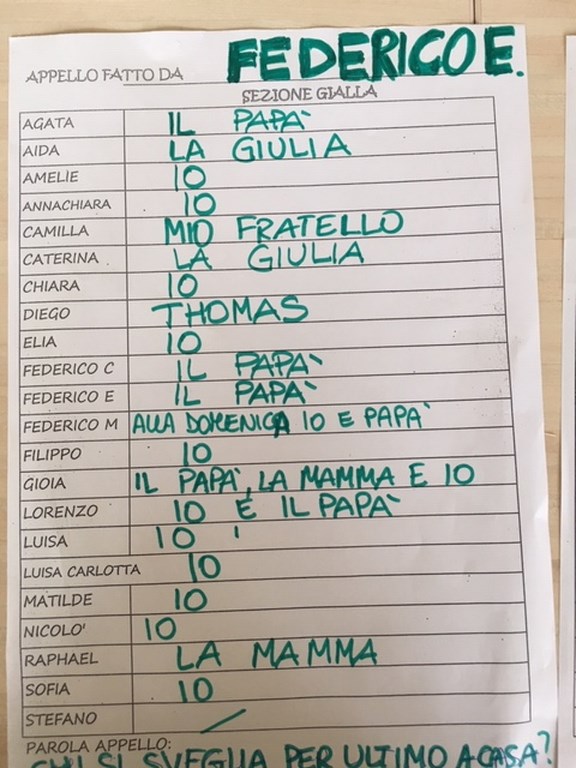 APPELLO FATTO DA FEDERICO E.
SEZIONE GIALLA
AGATA IL PAPÀ
AIDA LA GIULIA
AMELIE IO
ANNACHIARA IO
CAMILLA MIO FRATELLO
CATERINA LA GIULIA
CHIARA IO
DIEGO THOMAS
ELIA IO
FEDERICO C IL PAPÀ
FEDERICO E IL PAPÀ
FEDERICO M ALLA DOMENICA IO E PAPÀ
FILIPPO IO
GIOIA IL PAPÀ, LA MAMMA E IO
LORENZO IO E IL PAPÀ
LUISA IO
LUISA CARLOTTA IO
MATILDE IO
NICOLO' IO
RAPHAEL LA MAMMA
SOFIA IO
STEFANO /
PAROLA APPELLO:
CHI SI SVEGLIA PER ULTIMO A CASA?